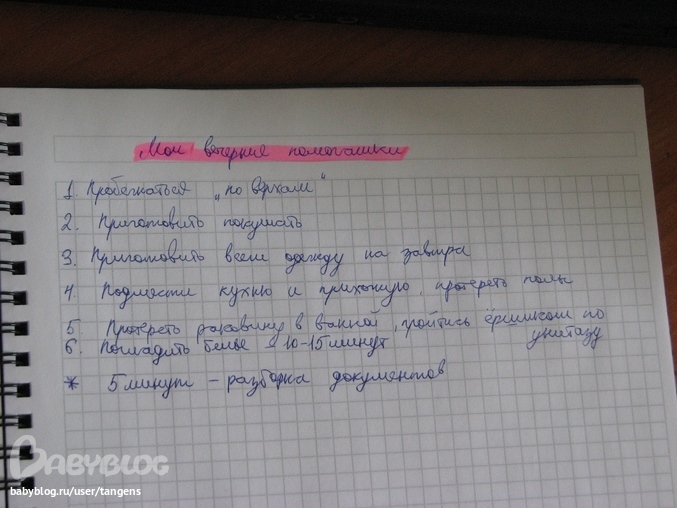 Мои вечерние помогашки
1. Пробежаться "по верхам"
2. Приготовить покушать
3. Приготовить всем одежду на завтра
4. Подмести кухню и прихожую, протереть полы
5. Протереть раковину в ванной, пройтись ёршиком по
унитазу
6. Погладить белье 10-15 минут
* 5 минут - разборка документов
BABYBLOG
babyblog.ru/user/tangens